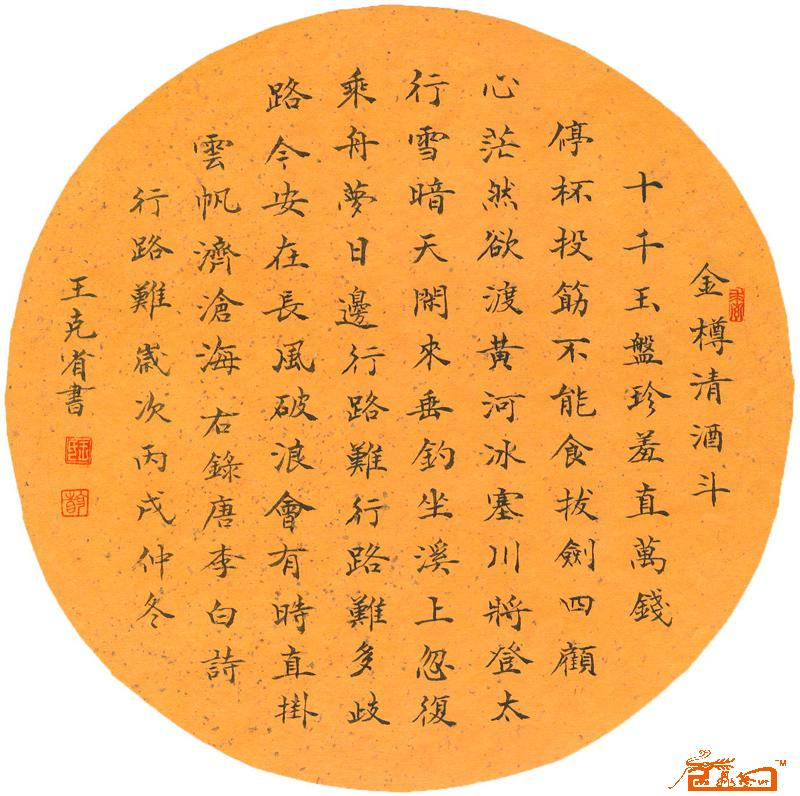 金樽清酒斗
十千玉盤珍羞直萬錢
停杯投筯不能食拔劍四顧
心茫然欲渡黃河冰塞川將登太
行雪暗天閑來垂釣坐溪上忽復
乘舟夢日邊行路難行路難多歧
路今安在長風破浪會有時直掛
雲帆濟滄海右錄唐李白詩
行路難歲次丙戌仲冬
王克省書